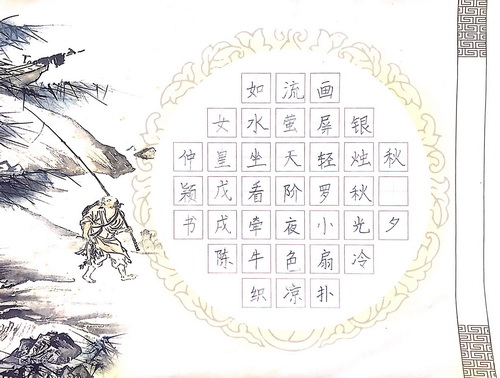 秋夕
银烛秋光冷
画屏轻罗小扇扑
流萤天阶夜色凉
如水坐看牵牛织
女星戊戌陈
仲颖节